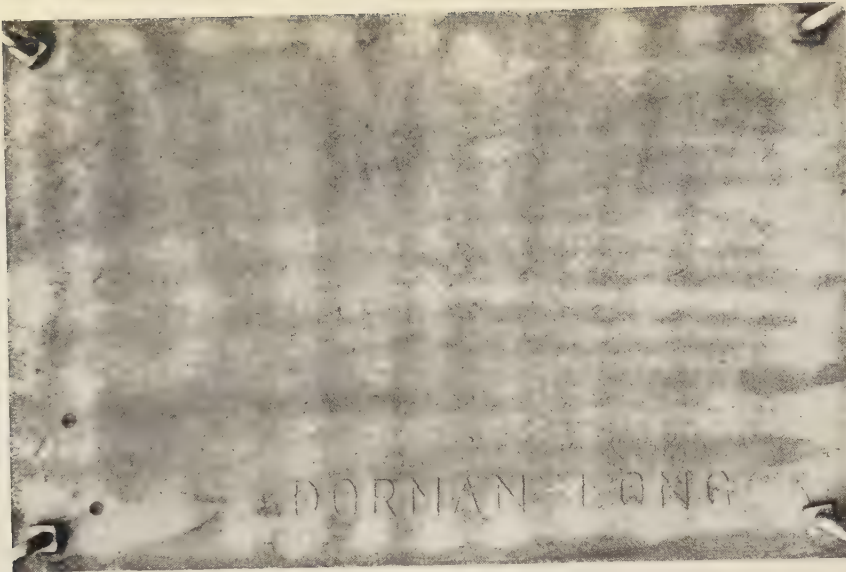 DORMAN LONG